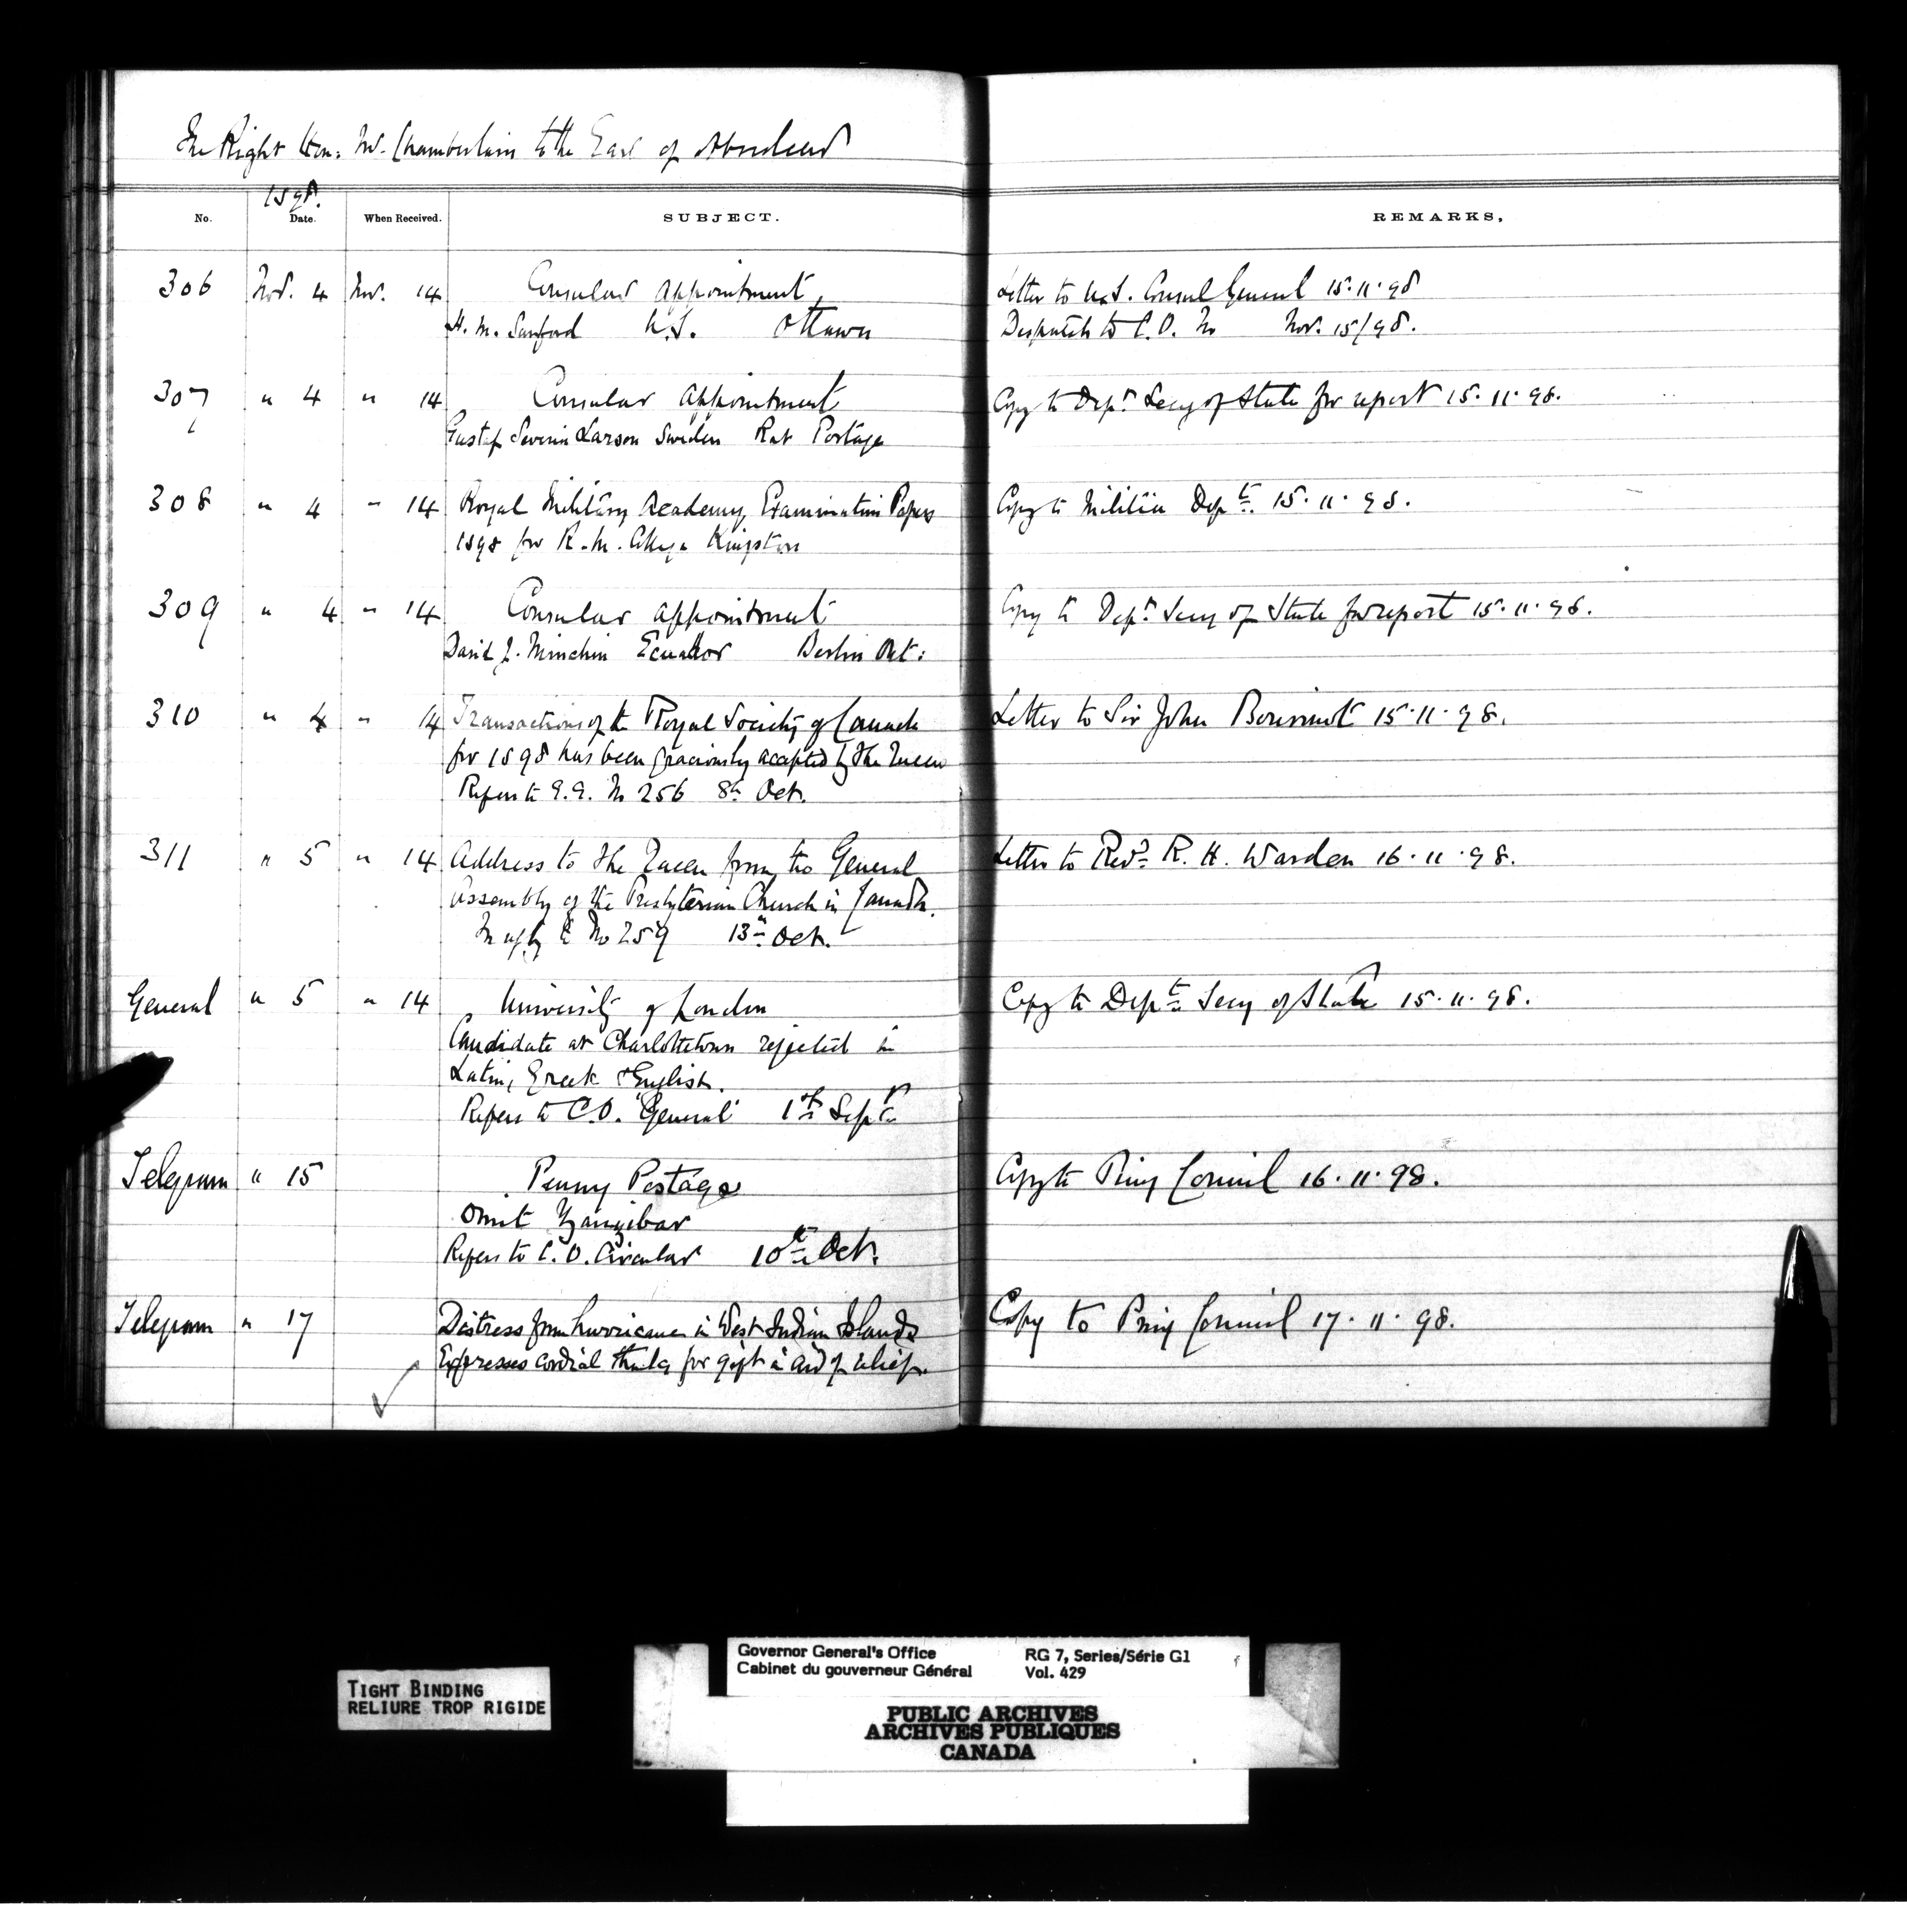 The Right Hon: Mr. Chamberlain to the Earl of Aberdeen
1898.
No. Date. When Received. SUBJECT. REMARKS,
306 Nov. 4 Nov. 14 Consular Appointment, Letter to U.S. Consul General 15.11.98
H. M. Sanford U.S. Ottawa Despatch to C.O. No Nov. 15/98.
307 " 4 " 14 Consular Appointment Copy to Depy. Secy of State for report 15.11.98.
Gustaf Severin Larson Sweden Rat Portage
308 " 4 " 14 Royal Military Academy Examination Papers Copy to Militia Dept. 15.11.98.
1898 for R.M. College Kingston
309 " 4 " 14 Consular Appointment Copy to Depy. Secy of State for report 15.11.98.
David J. Minchin Ecuador Berlin Ont:
310 " 4 " 14 Transactions of the Royal Society of Canada Letter to Sir John Bourinot 15.11.98.
for 1898 has been graciously accepted by the Queen
Refers to G.G. No 256 8th Oct.
311 " 5 " 14 Address to the Queen from the General Letter to Revd. R. H. Warden 16.11.98.
Assembly of the Presbyterian Church in Canada.
In reply to No 259 13th Oct.
General " 5 " 14 University of London Copy to Dept. Secy of State 15.11.98.
Candidate at Charlottetown rejected in
Latin, Greek & English.
Refers to C.O. "General" 1st Septr
Telegram " 15 Penny Postage Copy to Privy Council 16.11.98.
Omit Zanzibar
Refers to C.O. Circular 10th Oct.
Telegram " 17 Distress from hurricane in West Indian Islands Copy to Privy Council 17.11.98.
Expresses cordial thanks for gift in aid of relief.
TIGHT BINDING
RELIURE TROP RIGIDE
Governor General's Office RG 7, Series/Série G1
Cabinet du gouverneur Général Vol. 429
PUBLIC ARCHIVES
ARCHIVES PUBLIQUES
CANADA